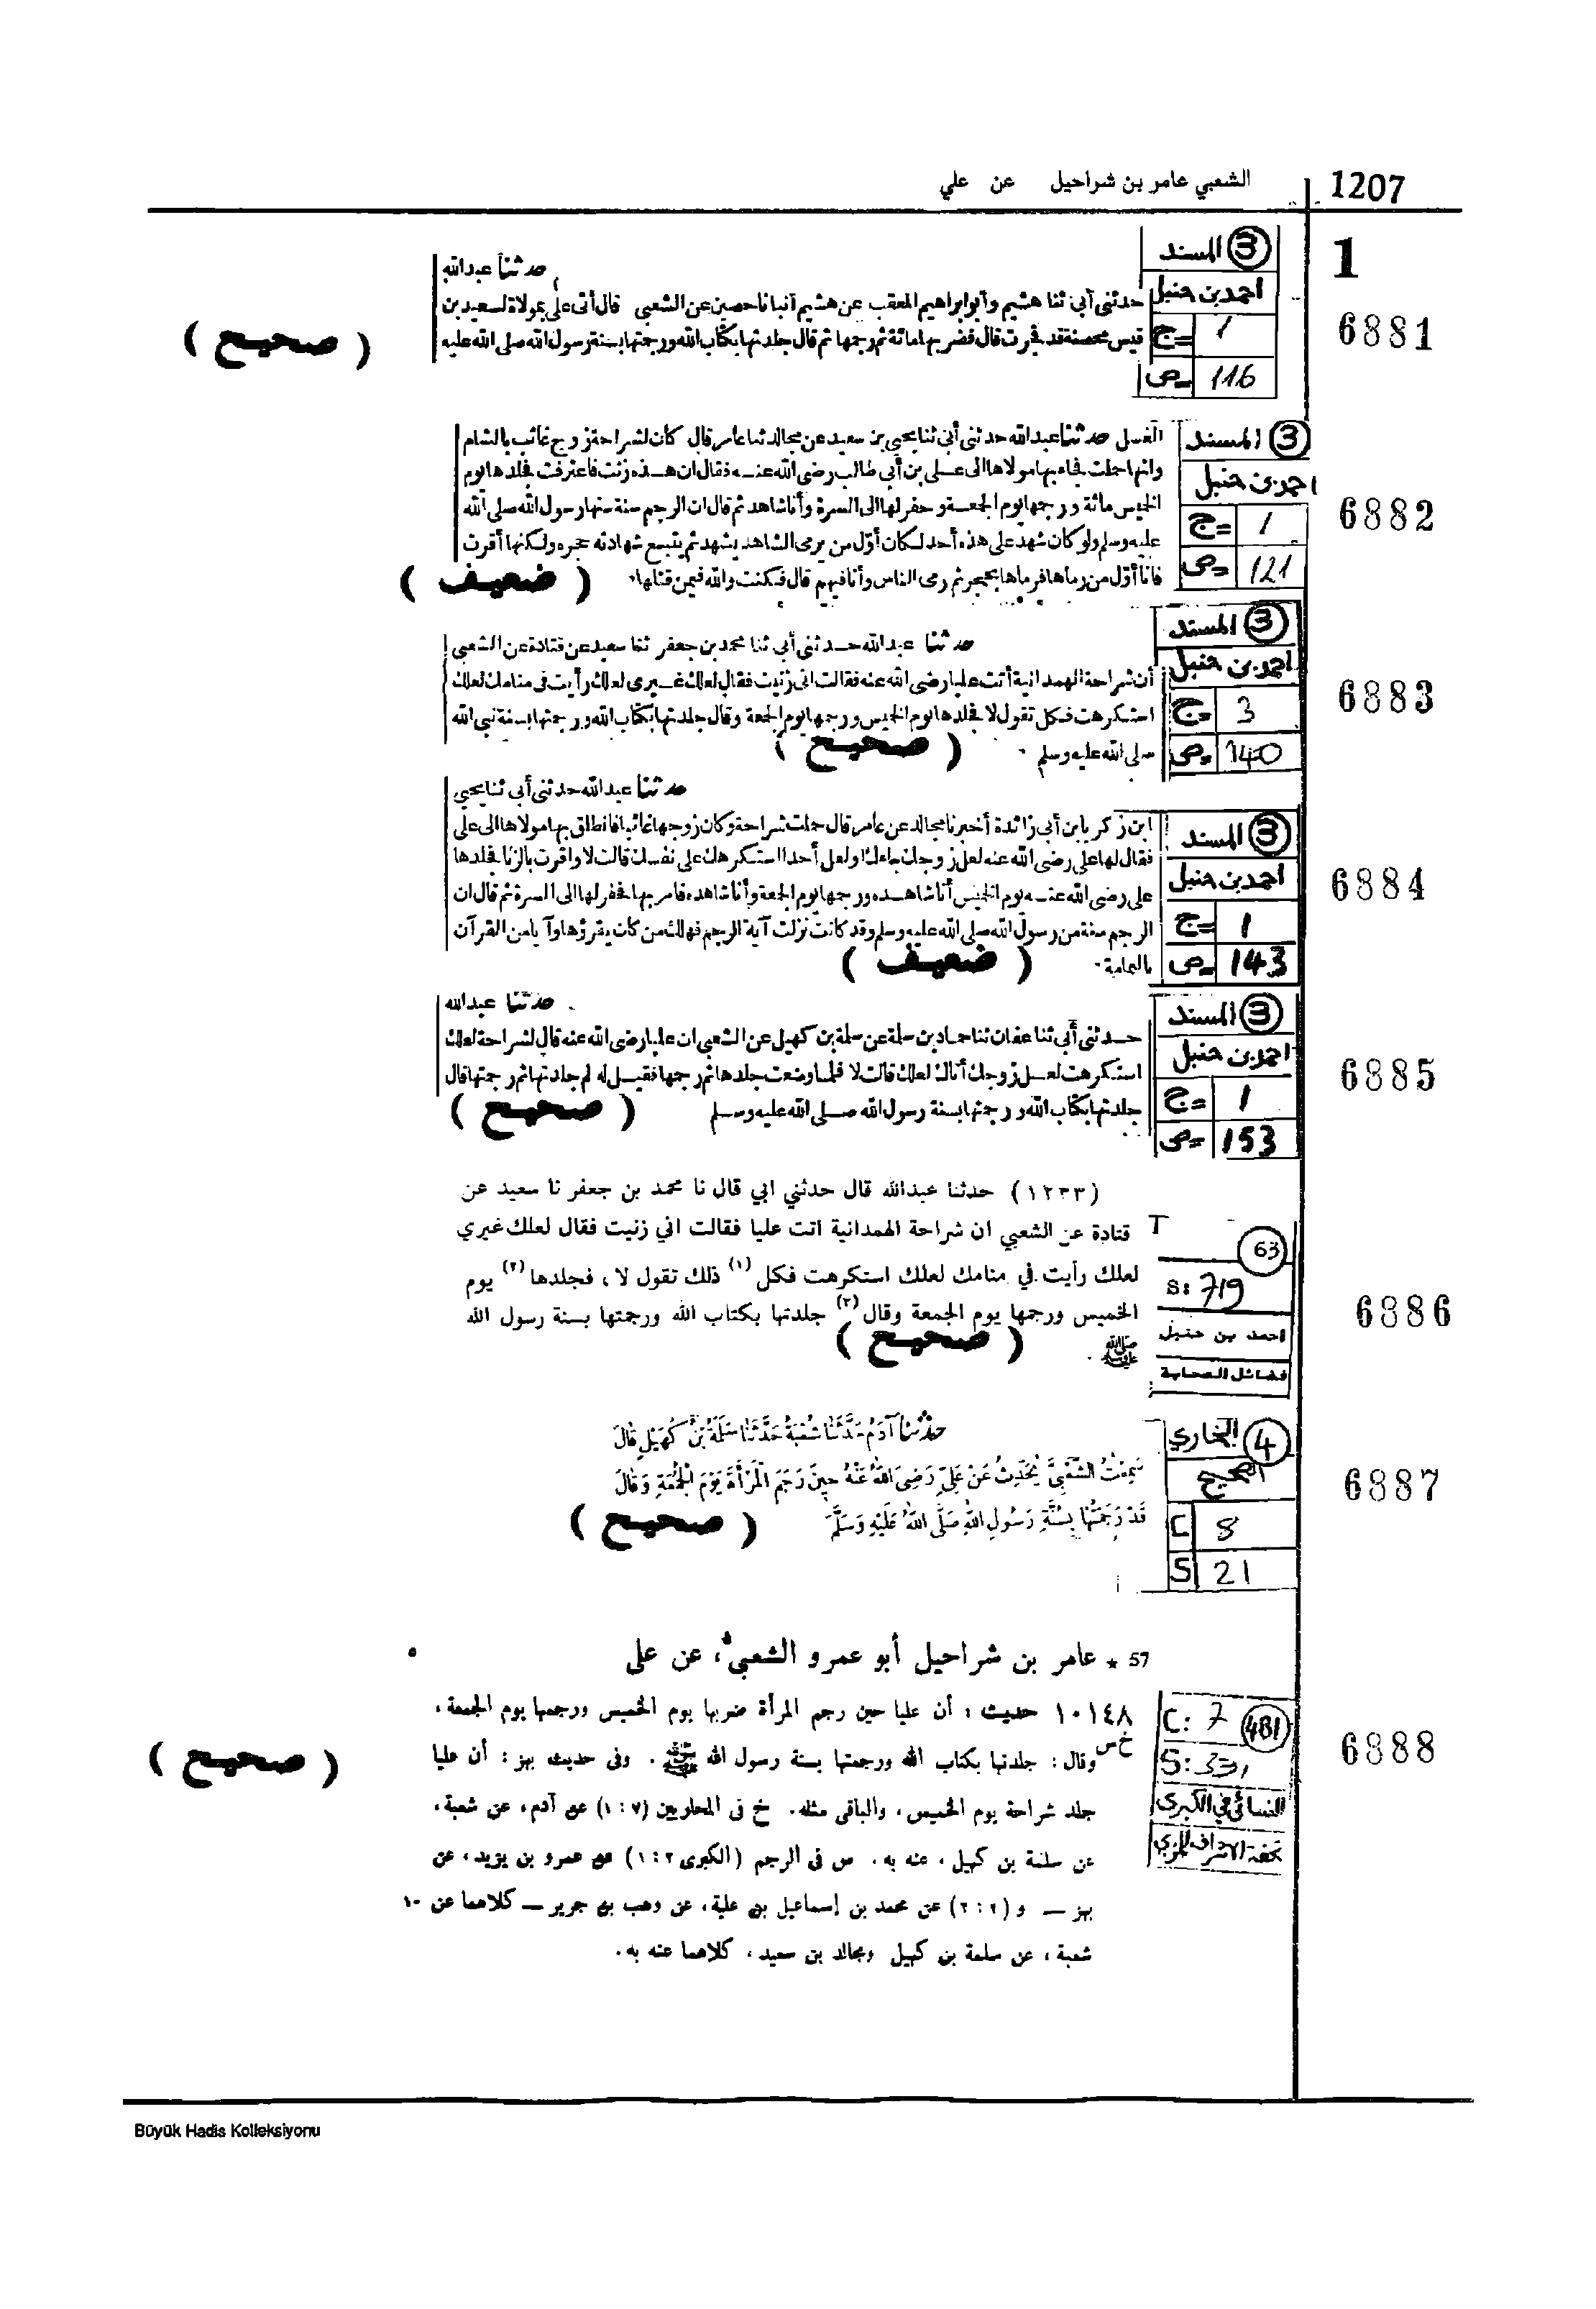 الشعبي عامر بن شراحيل عن علي
1207
1
③ المسند
احمد بن حنبل
ج= 1
ص= 116
6881
حدثنا عبدالله
حدثنى أبى ثنا هشيم وأبو ابراهيم المعقب عن هشيم أنبانا حصين عن الشعبى قال أتى على بمولاة لسعيد بن
قيس محصنة قد فجرت قال فضربها مائة ثم رجمها ثم قال جلدتها بكتاب الله ورجمتها بسنة رسول الله صلى الله عليه
( صحيح )
③ المسند
احمد بن حنبل
ج= 1
ص= 121
6882
الغسل حدثنا عبدالله حدثنى أبى ثنا يحيى بن سعيد عن مجالد ثنا عامر قال كان لشراحة زوج غائب بالشام
وانها حملت فجاء بها مولاها الى على بن أبى طالب رضى الله عنه فقال ان هذه زنت فاعترفت فجلدها يوم
الخميس مائة ورجمها يوم الجمعة وحفر لها الى السرة وأنا شاهد ثم قال ان الرجم سنة سنها رسول الله صلى الله
عليه وسلم ولو كان شهد على هذه أحد لكان أول من يرمى الشاهد يشهد ثم يتبع شهادته حجره ولكنها أقرت
فانا أول من رماها فرماها بحجر ثم رمى الناس وأنا فيهم قال فكنت والله فيمن قتلها
( ضعيف )
③ المسند
احمد بن حنبل
ج= 3
ص= 140
6883
حدثنا عبدالله حدثنى أبى ثنا محمد بن جعفر ثنا سعيد عن قتادة عن الشعبى
أن شراحة الهمدانية أتت عليا رضى الله عنه فقالت انى زنيت فقال لعلك غيرى لعلك رأيت فى منامك لعلك
استكرهت فكل تقول لا فجلدها يوم الخميس ورجمها يوم الجمعة وقال جلدتها بكتاب الله ورجمتها بسنة نبى الله
صلى الله عليه وسلم
( صحيح )
③ المسند
احمد بن حنبل
ج= 1
ص= 143
6884
حدثنا عبدالله حدثنى أبى ثنا يحيى
ابن زكريا بن أبى زائدة أخبرنا مجالد عن عامر قال حملت شراحة وكان زوجها غائبا فانطلق بها مولاها الى على
فقال لها على رضى الله عنه لعل زوجك جاءك أو لعل أحدا استكرهك على نفسك قالت لا وأقرت بالزنا فجلدها
على رضى الله عنه يوم الخميس أنا شاهده ورجمها يوم الجمعة وأنا شاهده فامر بها فحفر لها الى السرة ثم قال ان
الرجم سنة من رسول الله صلى الله عليه وسلم وقد كانت نزلت آية الرجم فهلك من كان يقرؤها وآيا من القرآن
باليمامة
( ضعيف )
③ المسند
احمد بن حنبل
ج= 1
ص= 153
6885
حدثنا عبدالله
حدثنى أبى ثنا عفان ثنا حماد بن سلمة عن سلمة بن كهيل عن الشعبى ان عليا رضى الله عنه قال لشراحة لعلك
استكرهت لعل زوجك أتاك لعلك قالت لا فلما وضعت جلدها ثم رجمها فقيل له لم جلدتها ثم رجمتها قال
جلدتها بكتاب الله ورجمتها بسنة رسول الله صلى الله عليه وسلم
( صحيح )
T
63
S: 719
احمد بن حنبل
فضائل الصحابة
6886
(١٢٣٣) حدثنا عبدالله قال حدثني ابي قال نا محمد بن جعفر نا سعيد عن
قتادة عن الشعبي ان شراحة الهمدانية اتت عليا فقالت اني زنيت فقال لعلك غيري
لعلك رأيت في منامك لعلك استكرهت فكل (١) ذلك تقول لا ، فجلدها (٢) يوم
الخميس ورجمها يوم الجمعة وقال (٣) جلدتها بكتاب الله ورجمتها بسنة رسول الله
ﷺ .
( صحيح )
④ البخاري
الصحيح
C 8
S 21
6887
حدثنا آدَمُ حَدَّثَنَا شُعْبَةُ حَدَّثَنَا سَلَمَةُ بْنُ كُهَيْلٍ قَالَ
سَمِعْتُ الشَّعْبِيَّ يُحَدِّثُ عَنْ عَلِيٍّ رَضِيَ اللهُ عَنْهُ حِينَ رَجَمَ الْمَرْأَةَ يَوْمَ الْجُمُعَةِ وَقَالَ
قَدْ رَجَمْتُهَا بِسُنَّةِ رَسُولِ اللهِ صَلَّى اللهُ عَلَيْهِ وَسَلَّمَ
( صحيح )
57 ★ عامر بن شراحيل أبو عمرو الشعبى، عن على
C: 7
481
S: 331
النسائي في الكبرى
تحفة الاشراف للمزي
6888
١٠١٤٨ حديث : أن عليا حين رجم المرأة ضربها يوم الخميس ورجمها يوم الجمعة ،
خ س
وقال : جلدتها بكتاب الله ورجمتها بسنة رسول الله ﷺ . وفى حديث بهز : أن عليا
( صحيح )
جلد شراحة يوم الخميس ، والباقى مثله . خ فى المحاربين (٧ : ١) عن آدم، عن شعبة،
عن سلمة بن كهيل ، عنه به . س فى الرجم (الكبرى ٢ : ١) عن عمرو بن يزيد ، عن
بهز ـــ و (٢ : ٢) عن محمد بن إسماعيل بن علية، عن وهب بن جرير ـــ كلاهما عن ١٠
شعبة ، عن سلمة بن كهيل ومجالد بن سعيد ، كلاهما عنه به .
Büyük Hadis Kolleksiyonu